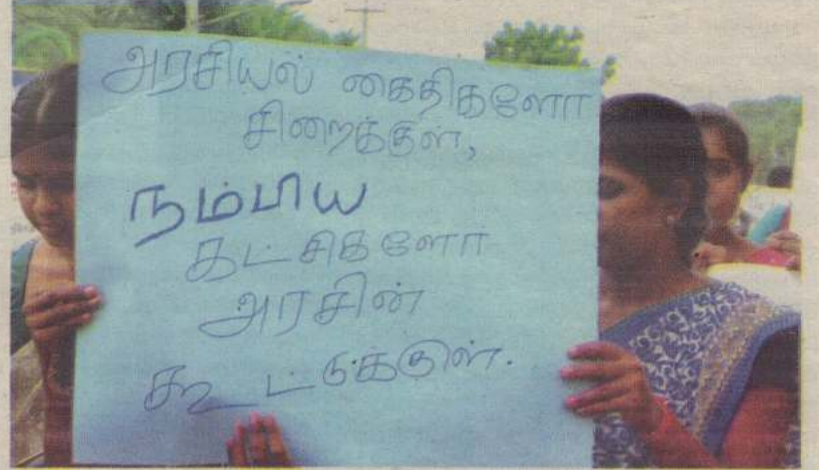 அரசியல் கைதிகளோ
சிறைக்குள்,
நம்பிய
கட்சிகளோ
அரசின்
கூட்டுக்குள்.